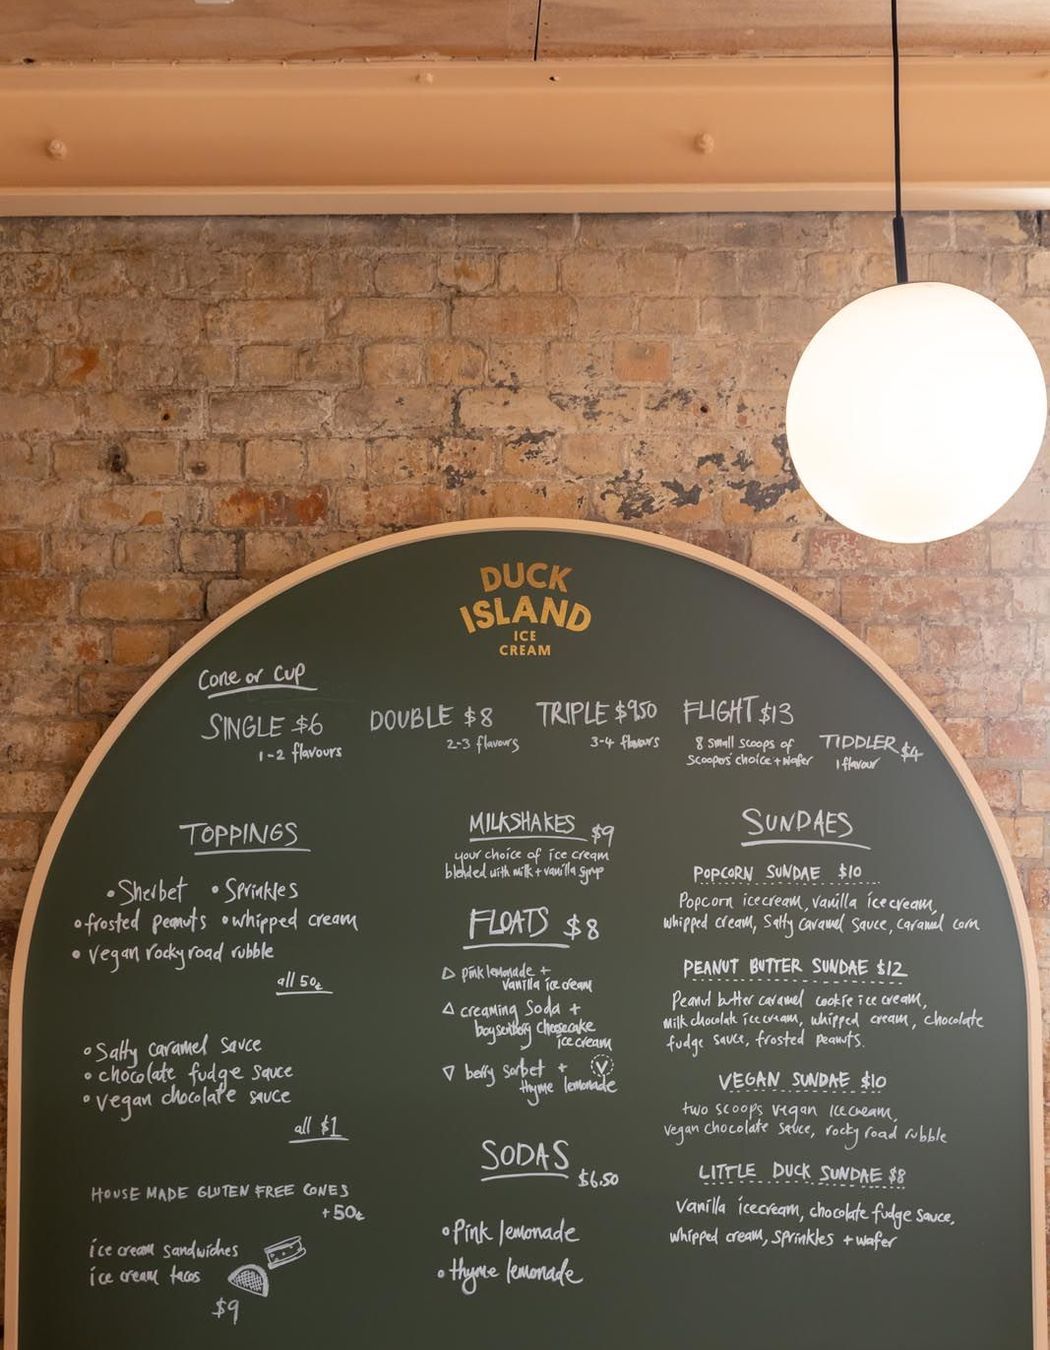 DUCK
ISLAND
ICE
CREAM
Cone or Cup
SINGLE $6
1-2 flavours
DOUBLE $8
2-3 flavours
TRIPLE $9.50
3-4 flavours
FLIGHT $13
8 small scoops of
scoopers' choice + wafer
TIDDLER $4
1 flavour
TOPPINGS
• Sherbet • Sprinkles
• frosted peanuts • whipped cream
• vegan rocky road rubble
all 50¢
• Salty caramel sauce
• chocolate fudge sauce
• vegan chocolate sauce
all $1
HOUSE MADE GLUTEN FREE CONES
+50¢
ice cream sandwiches
ice cream tacos
$9
MILKSHAKES $9
your choice of ice cream
blended with milk + vanilla syrup
FLOATS $8
pink lemonade +
vanilla ice cream
creaming soda +
boysenberry cheesecake
ice cream
berry sorbet + V
thyme lemonade
SODAS $6.50
• Pink lemonade
• thyme lemonade
SUNDAES
POPCORN SUNDAE $10
Popcorn icecream, vanilla icecream,
whipped cream, salty caramel sauce, caramel corn
PEANUT BUTTER SUNDAE $12
Peanut butter caramel cookie ice cream,
milk chocolate ice cream, whipped cream, chocolate
fudge sauce, frosted peanuts.
VEGAN SUNDAE $10
two scoops vegan icecream,
vegan chocolate sauce, rocky road rubble
LITTLE DUCK SUNDAE $8
Vanilla icecream, chocolate fudge sauce,
whipped cream, sprinkles + wafer